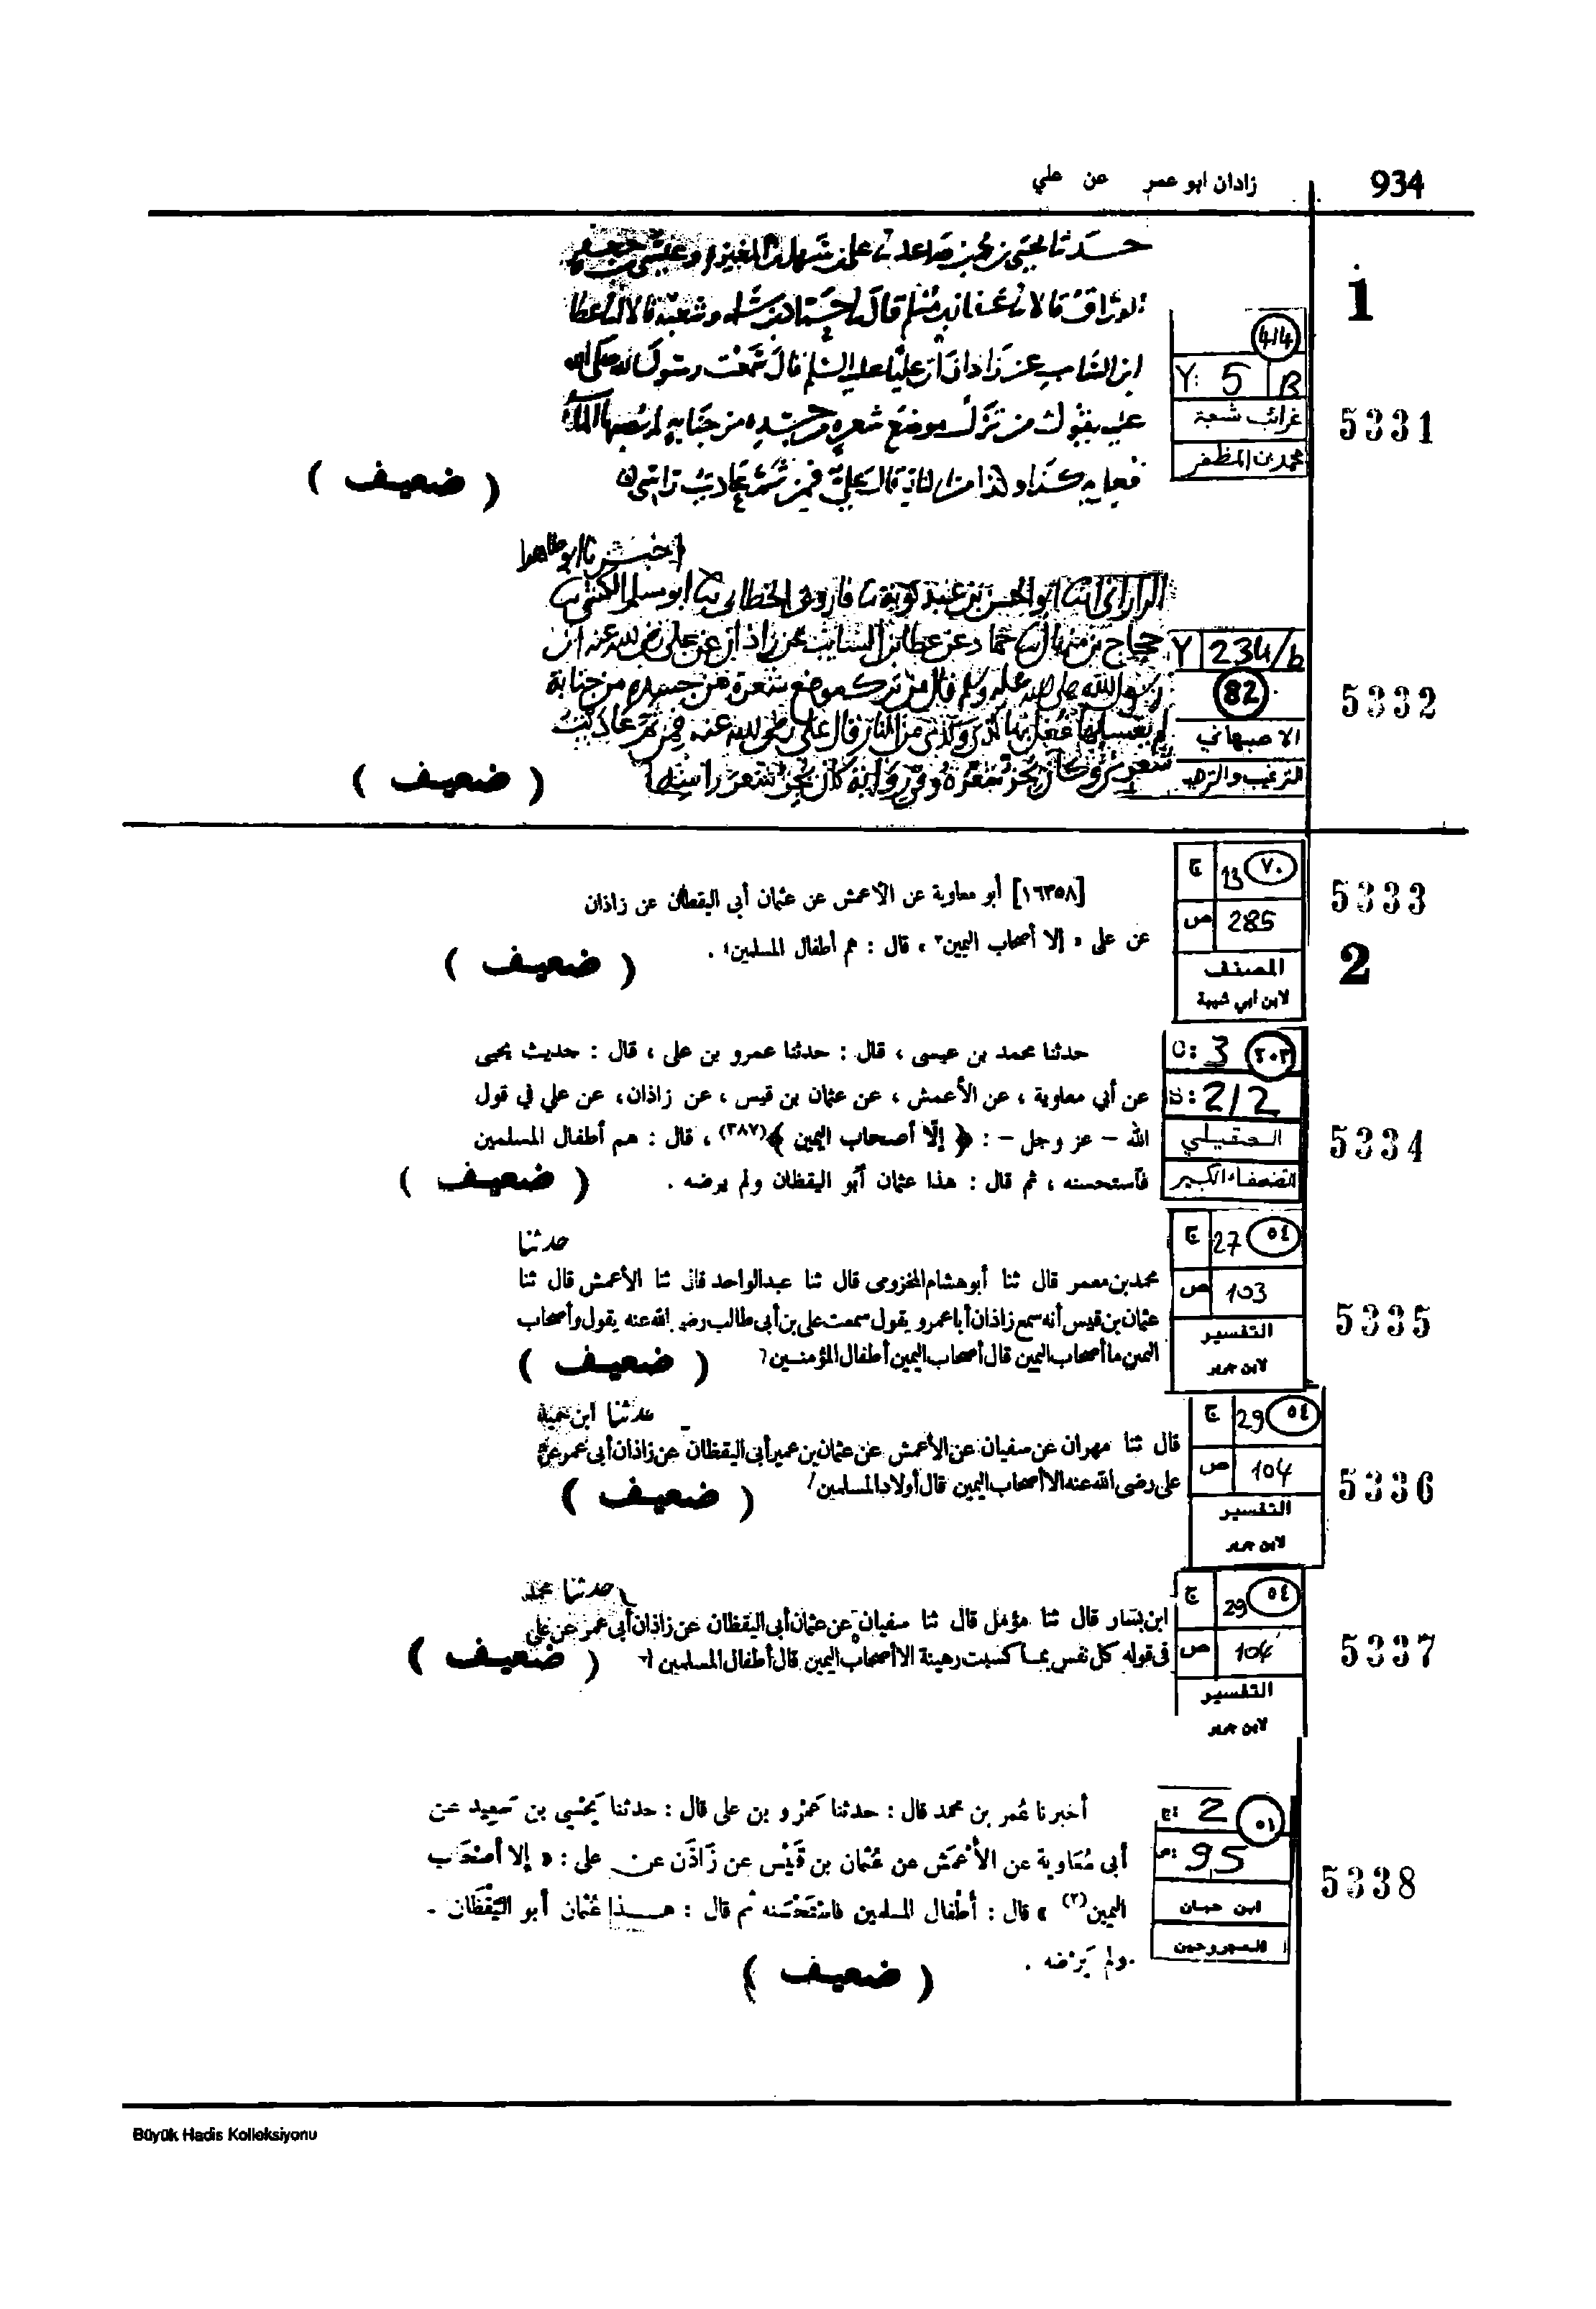 زادان ابو عمر عن علي
934
1
414
Y: 5 B
غرائب شعبة
محمد بن المظفر
5331
ابن السائب عن زاذان أن عليا عليه السلم قال سمعت رسول الله صلى الله
عليه يقول من ترك موضع شعرة من جسده من جنابة لم يصبها الماء
فعل به كذا وكذا من النار قال علي فمن ثم عاديت رأسي
( ضعيف )
اخبرنا ابو طاهر
حجاج بن منهال ثنا حماد عن عطا بن السايب عن زاذان عن علي رضي الله عنه ان
رسول الله صلى الله عليه وسلم قال من ترك موضع شعرة من جسده من جنابة
لم يغسلها فعل بها كذى وكذى من النار قال علي رضي الله عنه فمن ثم عاديت
شعري وكان يجز شعره وفي رواية كان يجز شعر راسه
( ضعيف )
Y 234/b
82
الاصبهاني
الترغيب والترهيب
5332
ج 13 ٧٠
ص 285
المصنف
لابن ابي شيبة
5333
2
[١٦٣٥٨] أبو معاوية عن الأعمش عن عثمان أبى اليقظان عن زاذان
عن على « إلا أصحاب اليمين » ، قال : هم أطفال المسلمين .
( ضعيف )
C: 3 ٢٠٣
S: 2/2
العقيلي
الضعفاء الكبير
5334
حدثنا محمد بن عيسى ، قال : حدثنا عمرو بن على ، قال : حديث يحيى
عن أبي معاوية ، عن الأعمش ، عن عثمان بن قيس ، عن زاذان، عن علي في قول
الله – عز وجل – : ﴿ إلّا أصحاب اليمين ﴾(٣٨٧) ، قال : هم أطفال المسلمين
فآستحسنه ، ثم قال : هذا عثمان أبو اليقظان ولم يرضه .
( ضعيف )
ج 27 ٥٤
ص 103
التفسير
لابن جرير
5335
حدثنا
محمد بن معمر قال ثنا أبو هشام المخزومى قال ثنا عبد الواحد قال ثنا الأعمش قال ثنا
عثمان بن قيس أنه سمع زاذان أبا عمرو يقول سمعت على بن أبى طالب رضى الله عنه يقول وأصحاب
اليمين ما أصحاب اليمين قال أصحاب اليمين أطفال المؤمنين
( ضعيف )
ج 29 ٥٤
ص 104
التفسير
لابن جرير
5336
حدثنا ابن حميد
قال ثنا مهران عن سفيان عن الأعمش عن عثمان بن عمير أبى اليقظان عن زاذان أبى عمر عن
على رضى الله عنه الا أصحاب اليمين قال أولاد المسلمين
( ضعيف )
ج 29 ٥٤
ص 104
التفسير
لابن جرير
5337
حدثنا محمد
ابن بشار قال ثنا مؤمل قال ثنا سفيان عن عثمان أبى اليقظان عن زاذان أبى عمر عن على
فى قوله كل نفس بما كسبت رهينة الا أصحاب اليمين قال أطفال المسلمين
( ضعيف )
ج: 2 ٥١
ص: 95
ابن حبان
المجروحين
5338
أخبرنا عُمر بن محمد قال : حدثنا عَمْرو بن على قال : حدثنا يَحْيى بن سَعِيد عن
أبى مُعَاوِية عن الأَعْمَش عن عُثْمان بن قَيْس عن زَاذَن عن على : « إلا أصْحَاب
اليمين(٢) » قال : أطْفال المسلمين فاسْتَحْسَنه ثم قال : هــذا عُثْمان أبو اليَقْظَان -
ولم يَرْضه .
( ضعيف )
Büyük Hadis Kolleksiyonu